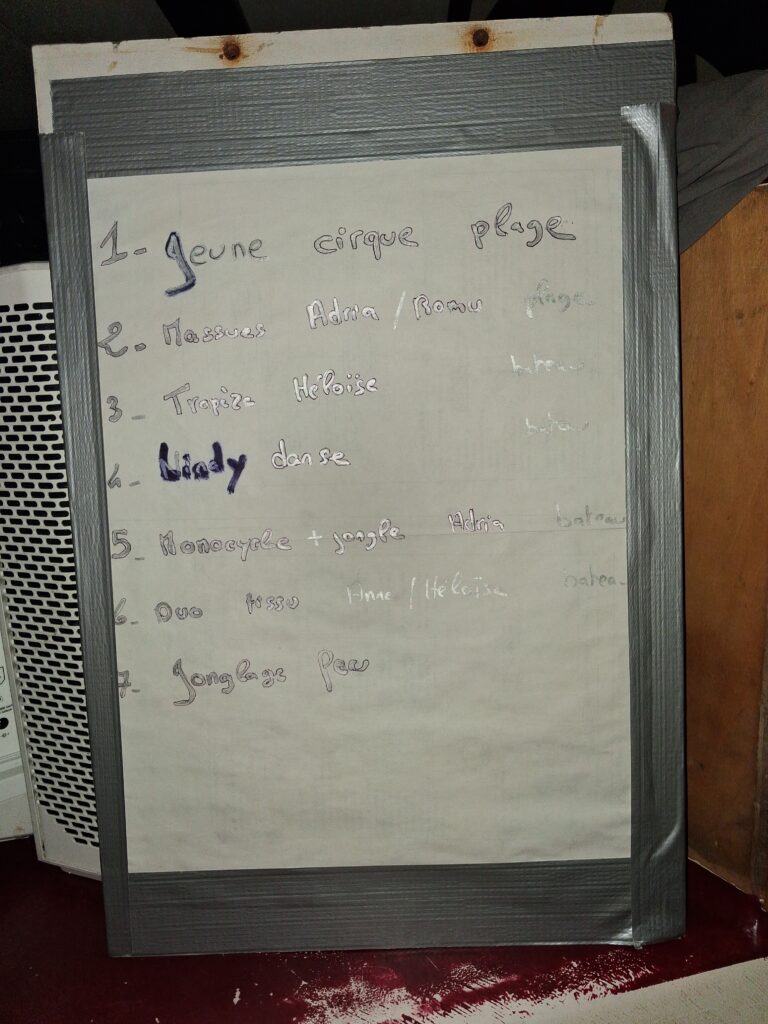 1- Jeune cirque plage
2- Massues Adria / Romu plage
3- Trapèze Héloïse bateau
4- danse bateau
5- Monocycle + jongle Adria bateau
6- Duo tissu Anne / Héloïse bateau
7- Jonglage feu